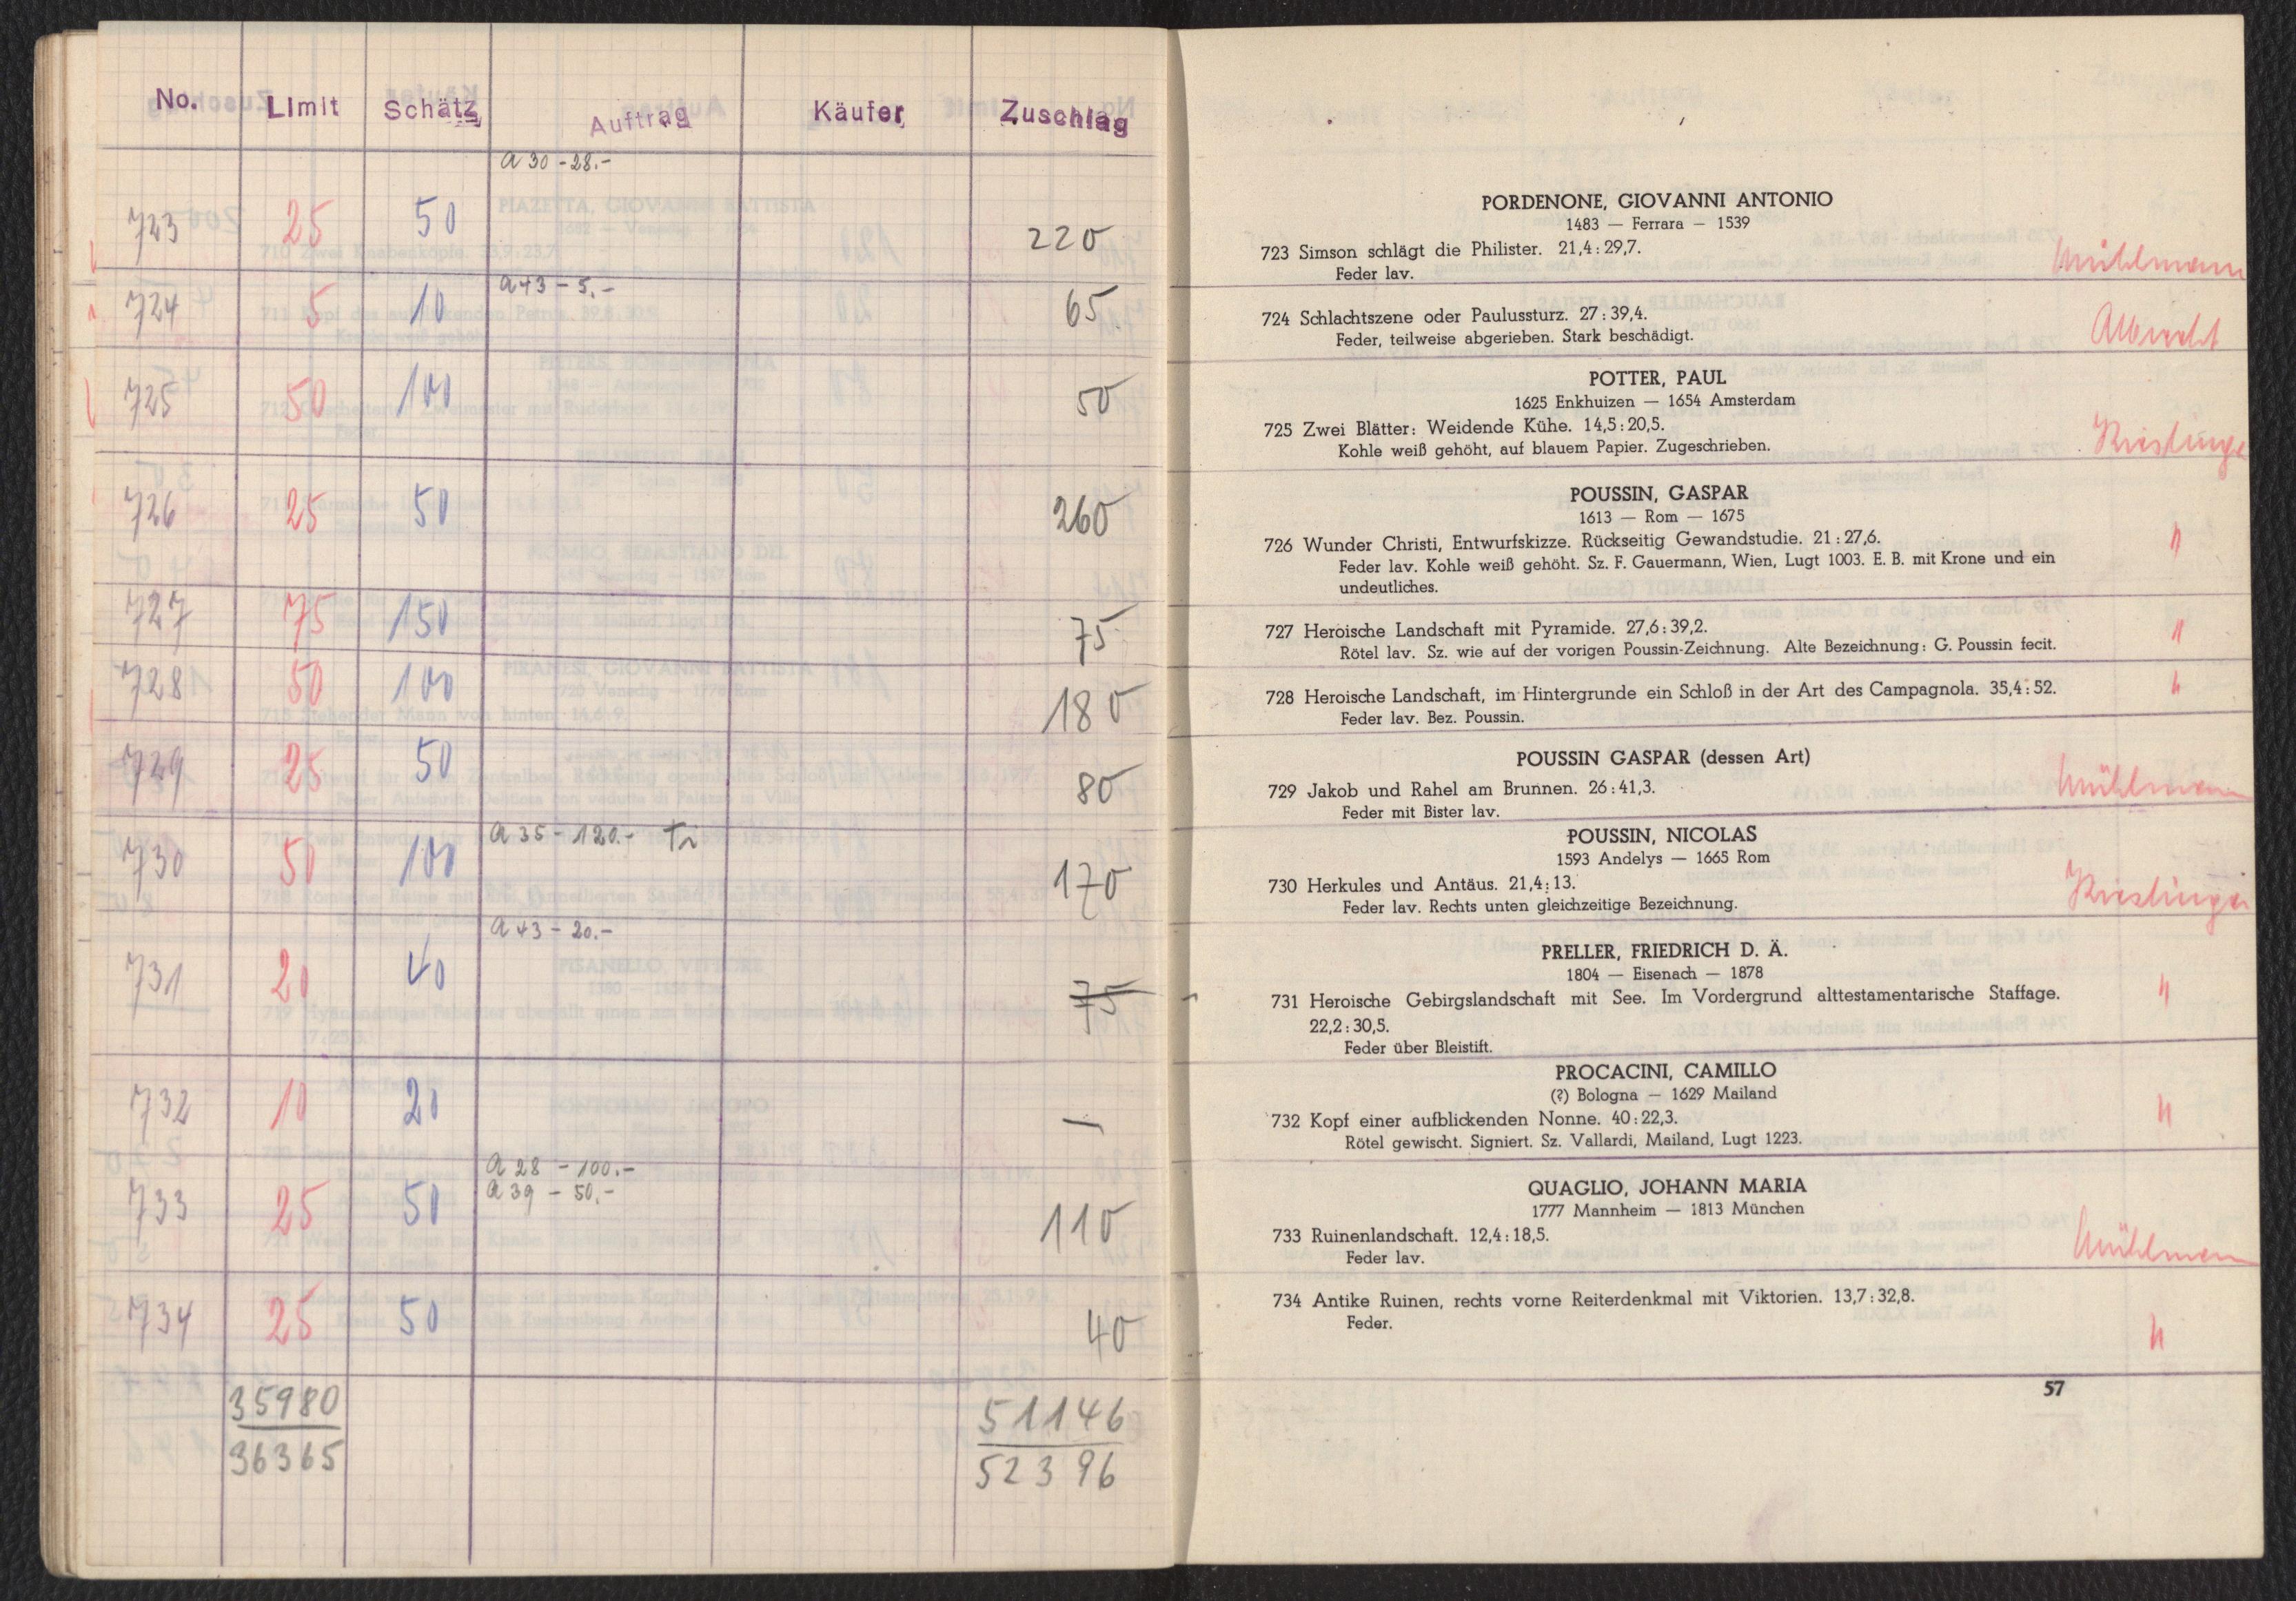 No. Limit Schätz Auftrag Käufer Zuschlag
a 30 - 28.-
723 25 50 220
a 43 - 5.-
724 5 10 65
725 50 100 50
726 25 50 260
727 75 150 75
728 50 100 180
729 25 50 80
a 35 - 120.-
730 50 100 170
a 43 - 20.-
731 20 40 75
732 10 20 —
a 28 - 100.-
a 39 - 50.-
733 25 50 110
734 25 50 40
35980 51146
36365 52396
PORDENONE, GIOVANNI ANTONIO
1483 — Ferrara — 1539
723 Simson schlägt die Philister. 21,4 : 29,7. Mühlmann
Feder lav.
724 Schlachtszene oder Paulussturz. 27 : 39,4. Albrecht
Feder, teilweise abgerieben. Stark beschädigt.
POTTER, PAUL
1625 Enkhuizen — 1654 Amsterdam
725 Zwei Blätter: Weidende Kühe. 14,5 : 20,5.
Kohle weiß gehöht, auf blauem Papier. Zugeschrieben.
POUSSIN, GASPAR
1613 — Rom — 1675
726 Wunder Christi, Entwurfskizze. Rückseitig Gewandstudie. 21 : 27,6. "
Feder lav. Kohle weiß gehöht. Sz. F. Gauermann, Wien, Lugt 1003. E. B. mit Krone und ein
undeutliches.
727 Heroische Landschaft mit Pyramide. 27,6 : 39,2. "
Rötel lav. Sz. wie auf der vorigen Poussin-Zeichnung. Alte Bezeichnung: G. Poussin fecit.
728 Heroische Landschaft, im Hintergrunde ein Schloß in der Art des Campagnola. 35,4 : 52. "
Feder lav. Bez. Poussin.
POUSSIN GASPAR (dessen Art)
729 Jakob und Rahel am Brunnen. 26 : 41,3. Mühlmann
Feder mit Bister lav.
POUSSIN, NICOLAS
1593 Andelys — 1665 Rom
730 Herkules und Antäus. 21,4 : 13.
Feder lav. Rechts unten gleichzeitige Bezeichnung.
PRELLER, FRIEDRICH D. Ä.
1804 — Eisenach — 1878
731 Heroische Gebirgslandschaft mit See. Im Vordergrund alttestamentarische Staffage. "
22,2 : 30,5.
Feder über Bleistift.
PROCACINI, CAMILLO
(?) Bologna — 1629 Mailand
732 Kopf einer aufblickenden Nonne. 40 : 22,3. "
Rötel gewischt. Signiert. Sz. Vallardi, Mailand, Lugt 1223.
QUAGLIO, JOHANN MARIA
1777 Mannheim — 1813 München
733 Ruinenlandschaft. 12,4 : 18,5. Mühlmann
Feder lav.
734 Antike Ruinen, rechts vorne Reiterdenkmal mit Viktorien. 13,7 : 32,8.
Feder. "
57